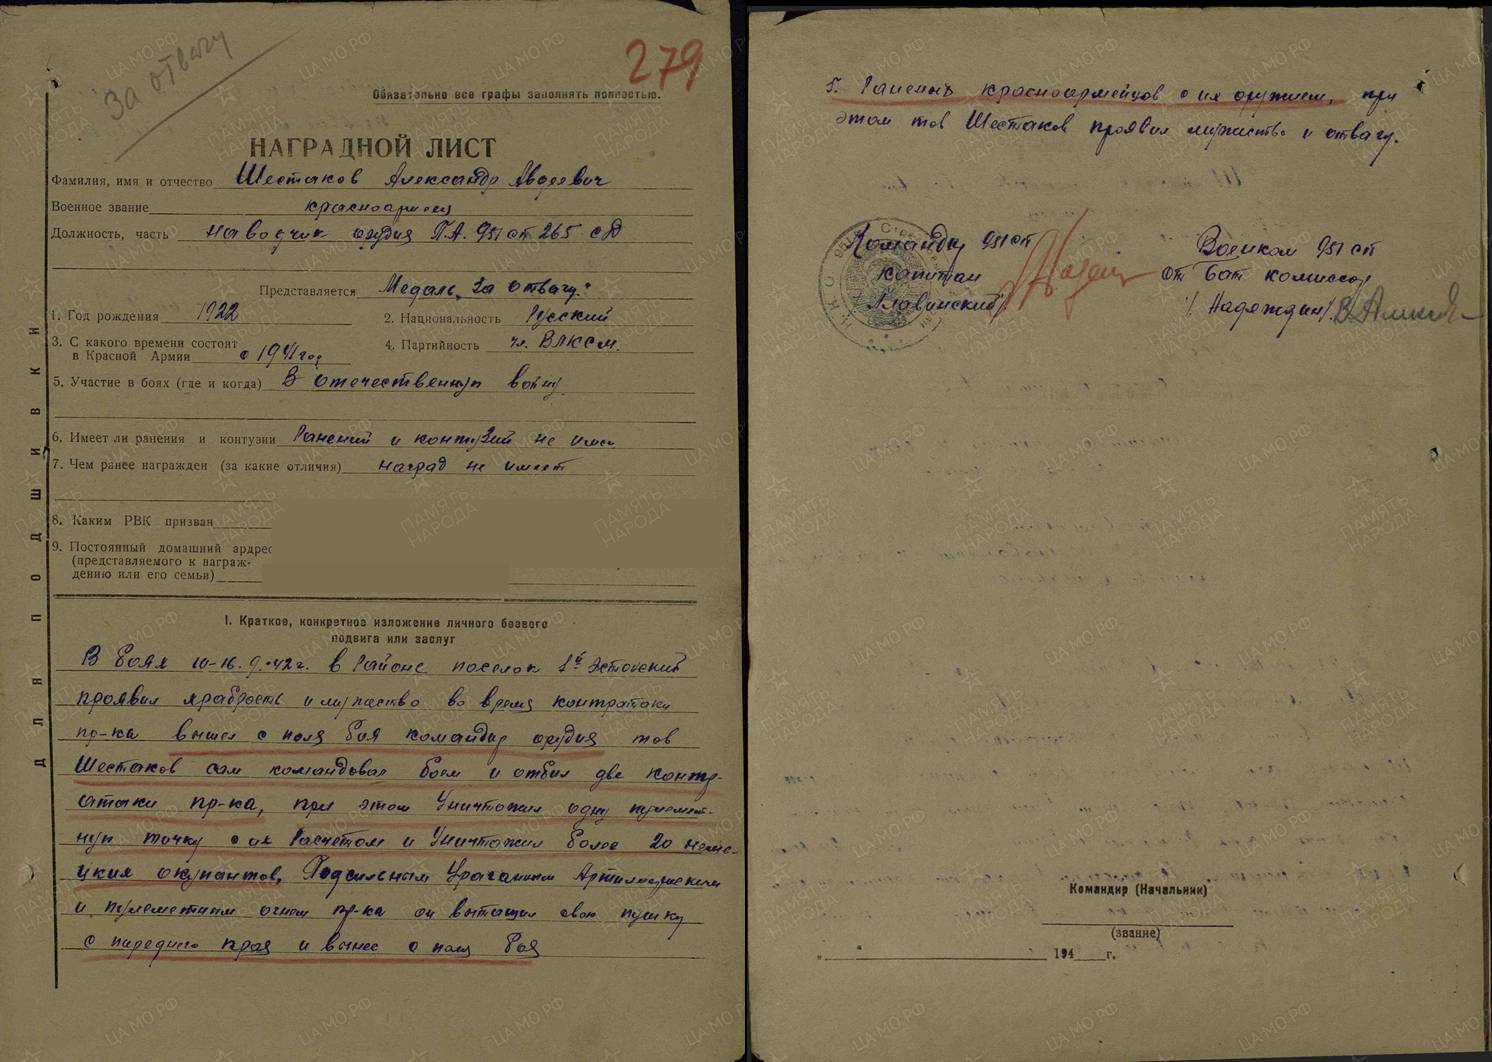 За отвагу
279
Обязательно все графы заполнять полностью.
НАГРАДНОЙ ЛИСТ
Фамилия, имя и отчество Шестаков Александр Авдеевич
Военное звание красноармеец
Должность, часть наводчик орудия П.А. 951 сп 265 сд
Представляется Медаль "За отвагу"
1. Год рождения 1922 2. Национальность Русский
3. С какого времени состоит
в Красной Армии с 1941 год 4. Партийность чл. ВЛКСМ.
5. Участие в боях (где и когда) В отечественную войну
6. Имеет ли ранения и контузии Ранений и контузий не имеет
7. Чем ранее награжден (за какие отличия) наград не имеет
8. Каким РВК призван
9. Постоянный домашний ардрес
(представляемого к награж-
дению или его семьи)
ДЛЯ ПОДШИВКИ
I. Кратное, конкретное изложение личного боевого
подвига или заслуг
В боях 10-16.9.42 г. в районе поселок 1й Эстонский
проявил храбрость и мужество во время контратаки
пр-ка вышел с поля боя командир орудия тов
Шестаков сам командовал боем и отбил две контр-
атаки пр-ка, при этом уничтожил одну пулемет-
ную точку с их расчетом и уничтожил более 20 неме-
цких окупантов, Под сильным ураганным Артилерийским
и пулеметным огнем пр-ка он вытащил свою пушку
с переднего края и вынес с поля боя
5. Раненых красноармейцов с их оружием, при
этом тов Шестаков проявил мужество и отвагу.
Командир 951 сп
капитан
Главинский
Военком 951 сп
ст бат комиссар
/Надеждин/
Командир (Начальник)
(звание)
" " 194 г.
ЦА МО РФ
ПАМЯТЬ НАРОДА